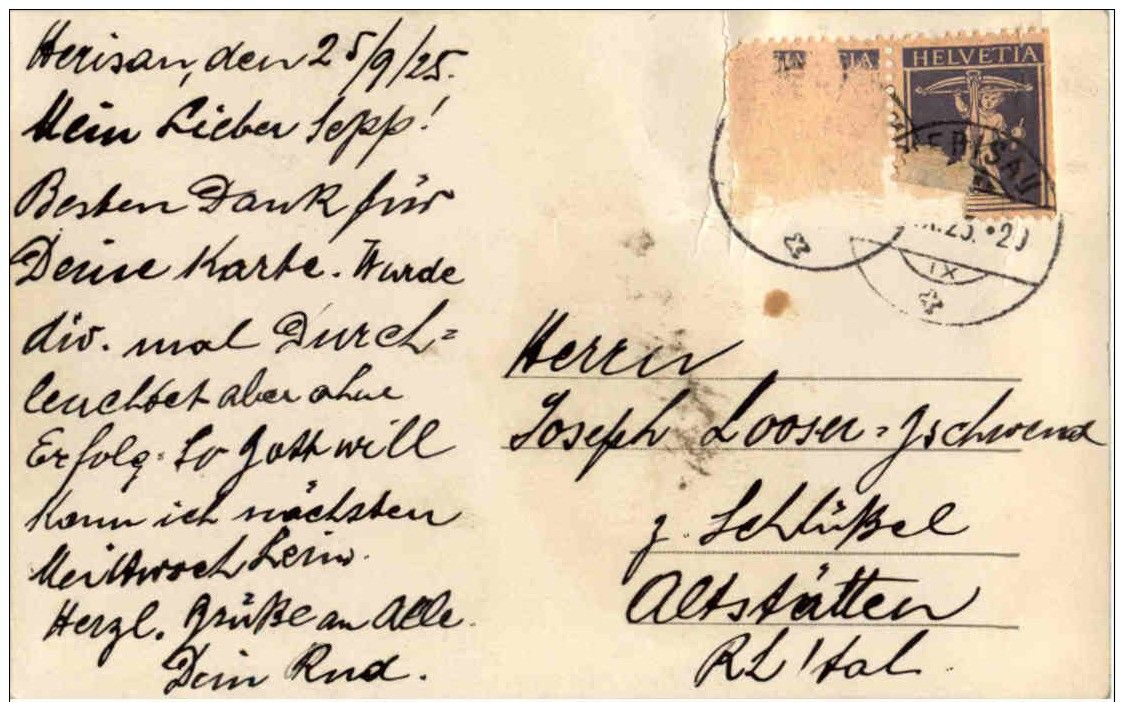 Herisau, den 25/9/25.
Mein Lieber Sepp!
Besten Dank für
Deine Karte. Wurde
div. mal Durch=
leuchtet aber ohne
Erfolg. So Gott will
kann ich nächsten
Mittwoch heim.
Herzl. Grüße an Alle.
Dein Rud.
HELVETIA
HELVETIA
HERISAU
IX
Herrn
Joseph Looser=Gschwend
z. Schlüßel
Altstätten
Rh'tal.